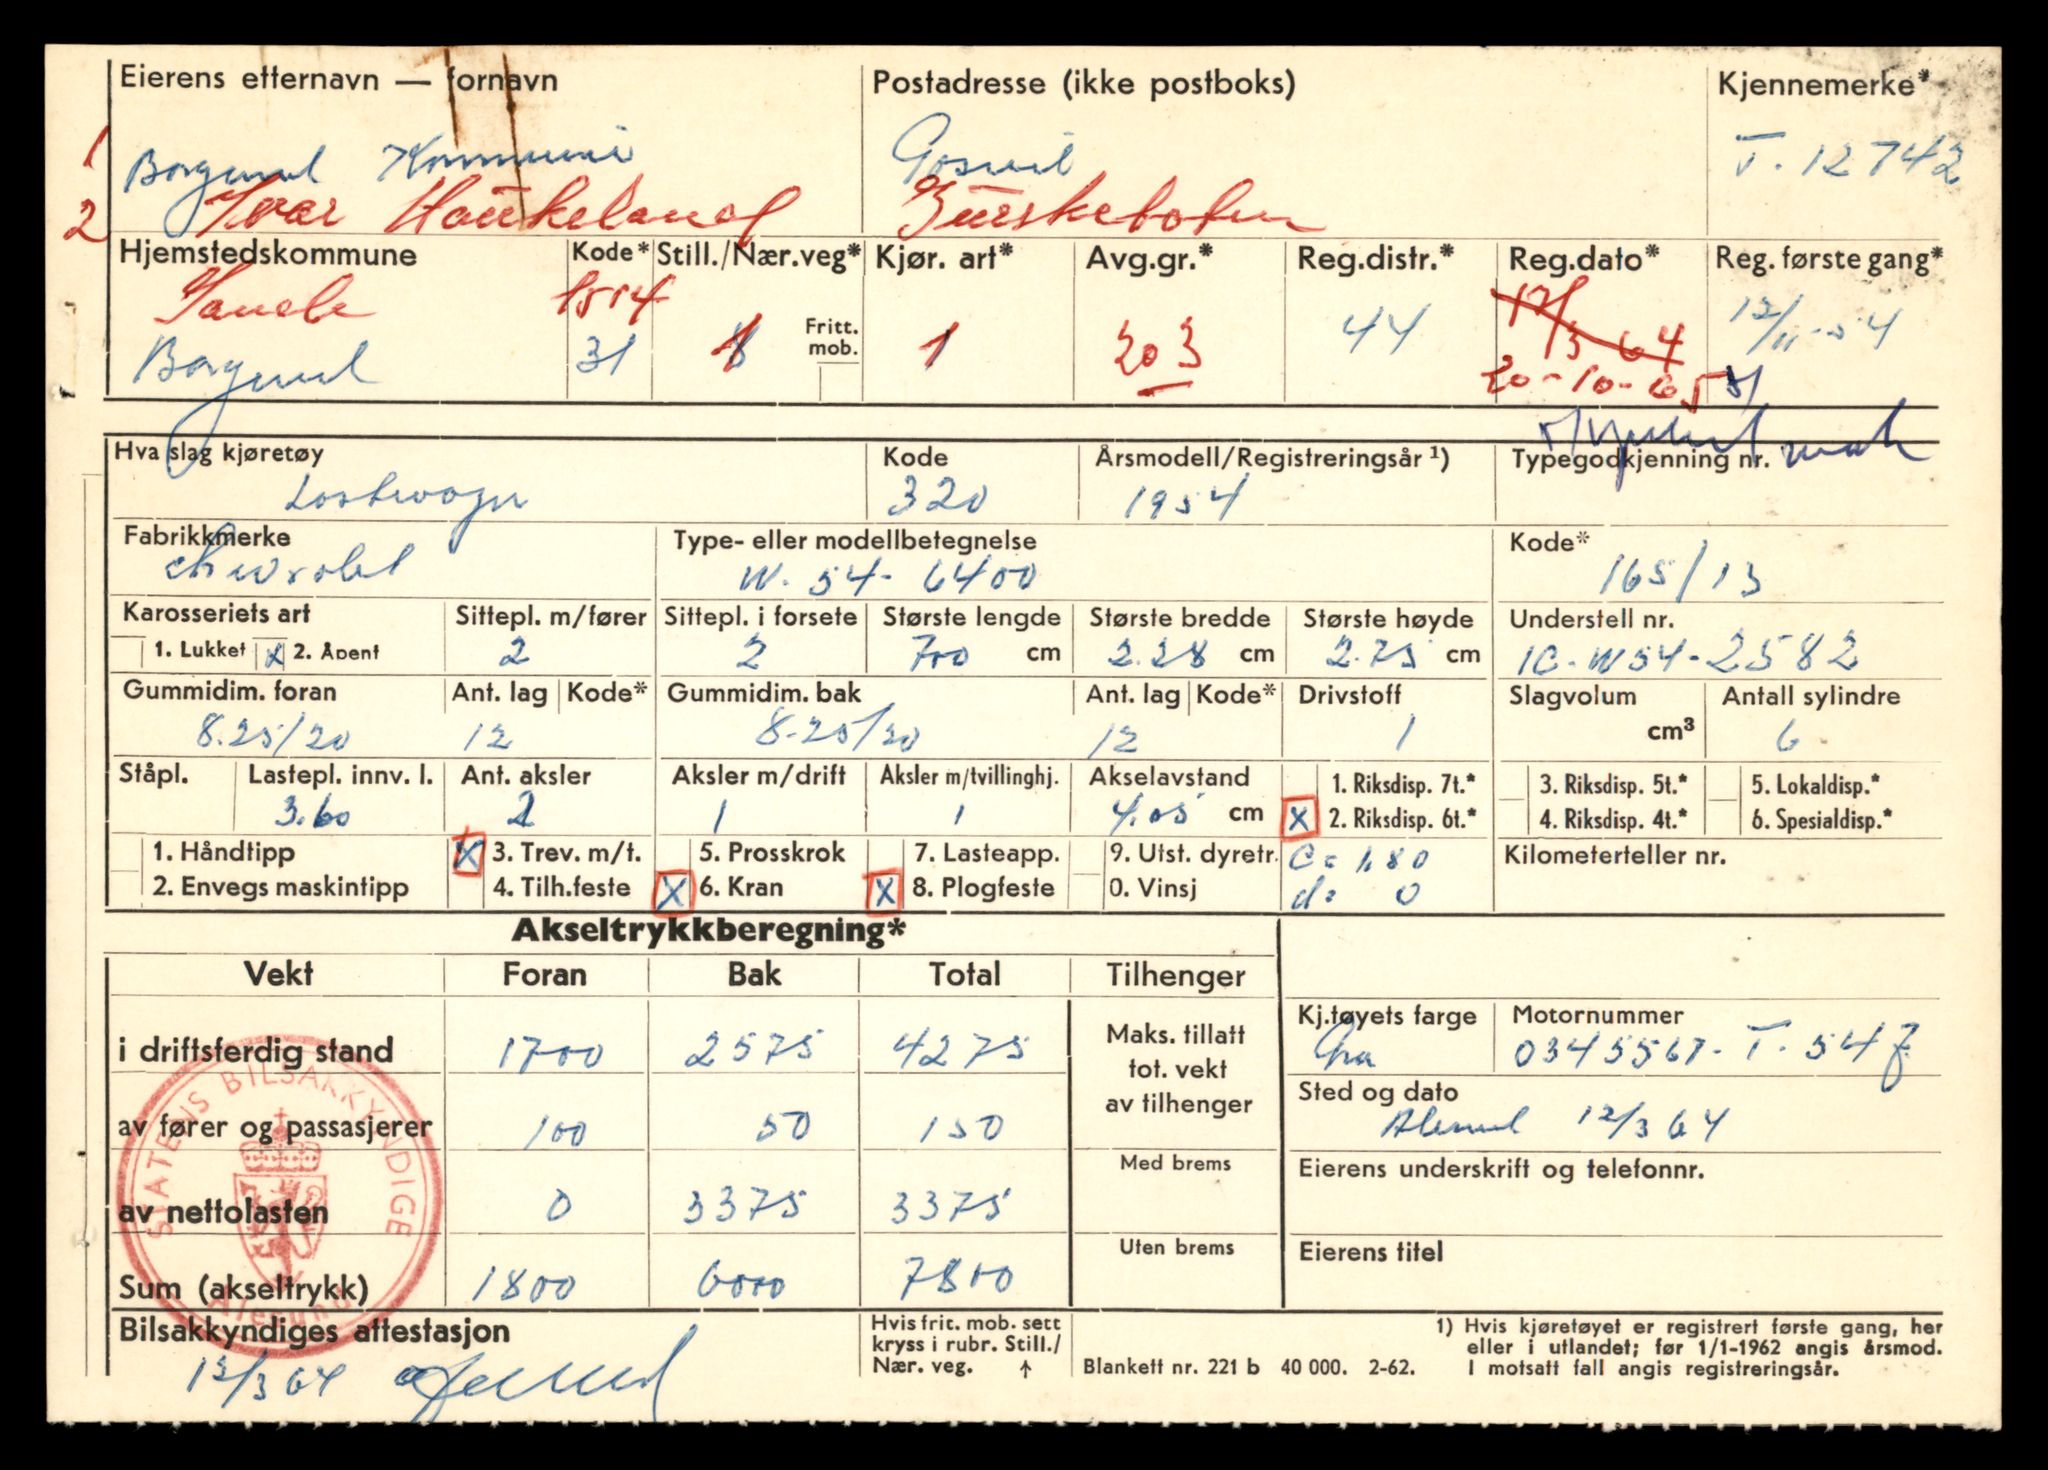 Eierens etternavn — fornavn Postadresse (ikke postboks) Kjennemerke*
1 Borgund Kommune T. 12742
2 Ivar Haukeland Gurskebotn
Hjemstedskommune Kode* Still./Nær.veg* Kjør. art* Avg.gr.* Reg.distr.* Reg.dato* Reg. første gang*
Sande 1514 17/3 64 12/11-54
Borgund 31 Fritt. mob. 1 203 44 20-10-65
Hva slag kjøretøy Kode Årsmodell/Registreringsår 1) Typegodkjenning nr.
Lastevogn 320 1954
Fabrikkmerke Type- eller modellbetegnelse Kode*
Chevrolet W. 54- 6400 165/13
Karosseriets art Sittepl. m/fører Sittepl. i forsete Største lengde Største bredde Største høyde Understell nr.
1. Lukket x 2. Åpent 2 2 700 cm 2.28 cm 2.75 cm 1C-W54-2582
Gummidim. foran Ant. lag Kode* Gummidim. bak Ant. lag Kode* Drivstoff Slagvolum Antall sylindre
8.25/20 12 8.25/20 12 1 cm³ 6
Ståpl. Lastepl. innv. l. Ant. aksler Aksler m/drift Aksler m/tvillinghj. Akselavstand 1. Riksdisp. 7t.* 3. Riksdisp. 5t.* 5. Lokaldisp.*
3.60 2 1 1 4.05 cm x 2. Riksdisp. 6t.* 4. Riksdisp. 4t.* 6. Spesialdisp.*
1. Håndtipp x 3. Trev. m/t. 5. Prosskrok 7. Lasteapp. 9. Utst. dyretr. C = 1.80 Kilometerteller nr.
2. Envegs maskintipp 4. Tilh.feste x 6. Kran x 8. Plogfeste 0. Vinsj d = 0
Akseltrykkberegning*
Vekt Foran Bak Total Tilhenger
i driftsferdig stand 1700 2575 4275 Maks. tillatt tot. vekt av tilhenger
Kj.tøyets farge Motornummer
Grå 0345567-T-54Z
av fører og passasjerer 100 50 150
Sted og dato
Ålesund 12/3 64
av nettolasten 0 3375 3375 Med brems
Eierens underskrift og telefonnr.
Sum (akseltrykk) 1800 6000 7800 Uten brems
Eierens titel
STATENS BILSAKKYNDIGE
Ålesund
Bilsakkyndiges attestasjon
12/3 64
Hvis frit. mob. sett
kryss i rubr. Still./
Nær. veg. ↑
Blankett nr. 221 b 40 000. 2-62.
1) Hvis kjøretøyet er registrert første gang, her
eller i utlandet; før 1/1-1962 angis årsmod.
I motsatt fall angis registreringsår.